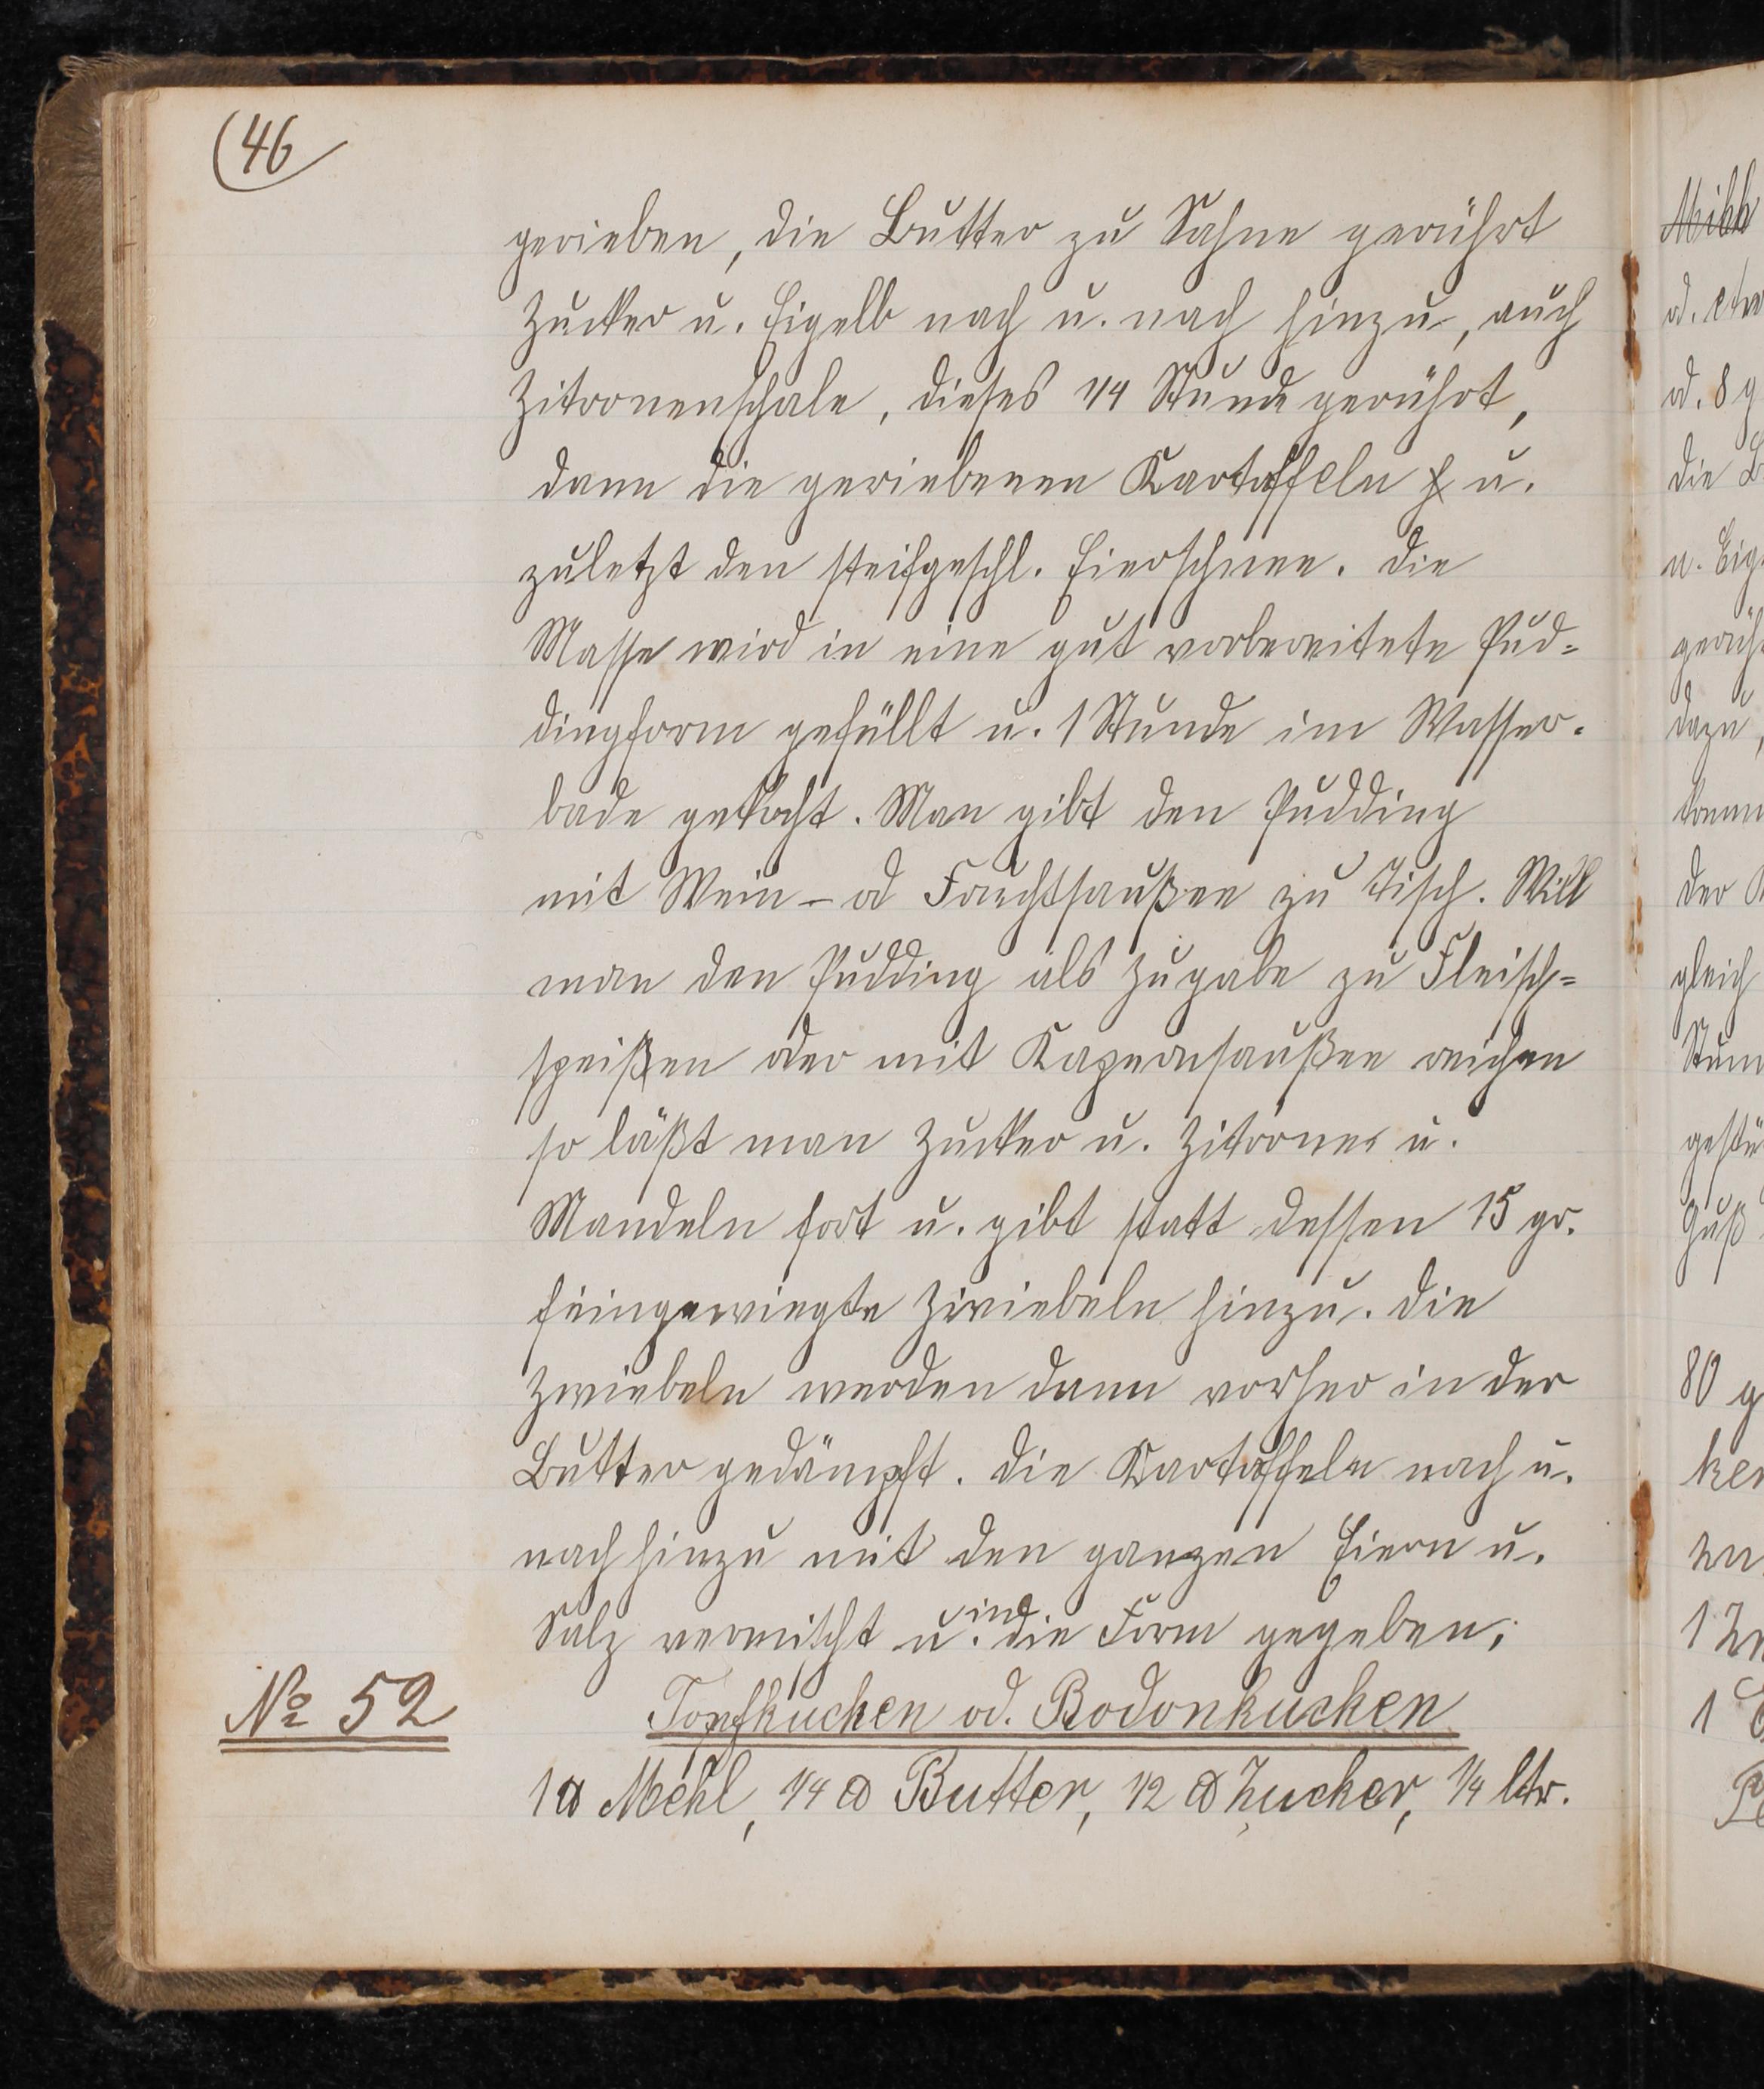 (46
gerieben, die Butter zu Sahne gerührt
Zucker u. Eigelb nach u. nach hinzu, auch
Zitronenschale, dieses 1/4 Stunde gerührt,
dann die geriebenen Kartoffeln u.
zuletzt den steifgeschl. Eierschnee. Die
Masse wird in eine gut vorbereitete Pud=
dingform gefüllt u. 1 Stunde im Wasser-
bade gekocht. Man gibt den Pudding
mit Wein- od Fruchtsaußen zu Tisch. Will
man den Pudding als Zugabe zu Fleisch=
speißen oder mit Kapernsaußen reichen
so läßt man Zucker u. Zitrone u.
Mandeln fort u. gibt statt dessen 15 gr.
feingewiegte Zwiebeln hinzu. Die
Zwiebeln werden dann vorher in der
Butter gedämpft. Die Kartoffeln nach u.
nach hinzu mit den ganzen Eiern u.
Salz vermischt u. in die Form gegeben.
№ 52 Topfkuchen od. Bodonkuchen
1 ℔ Mehl, 1/4 ℔ Butter, 1/2 ℔ Zucker, 1/4 ltr.
Milch
od. 8 g
die
dazu,
der
gleich
Guß
80 g